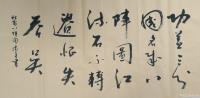 功蓋三分
國名成八
陣圖江
流石不轉
遺恨失
吞吳